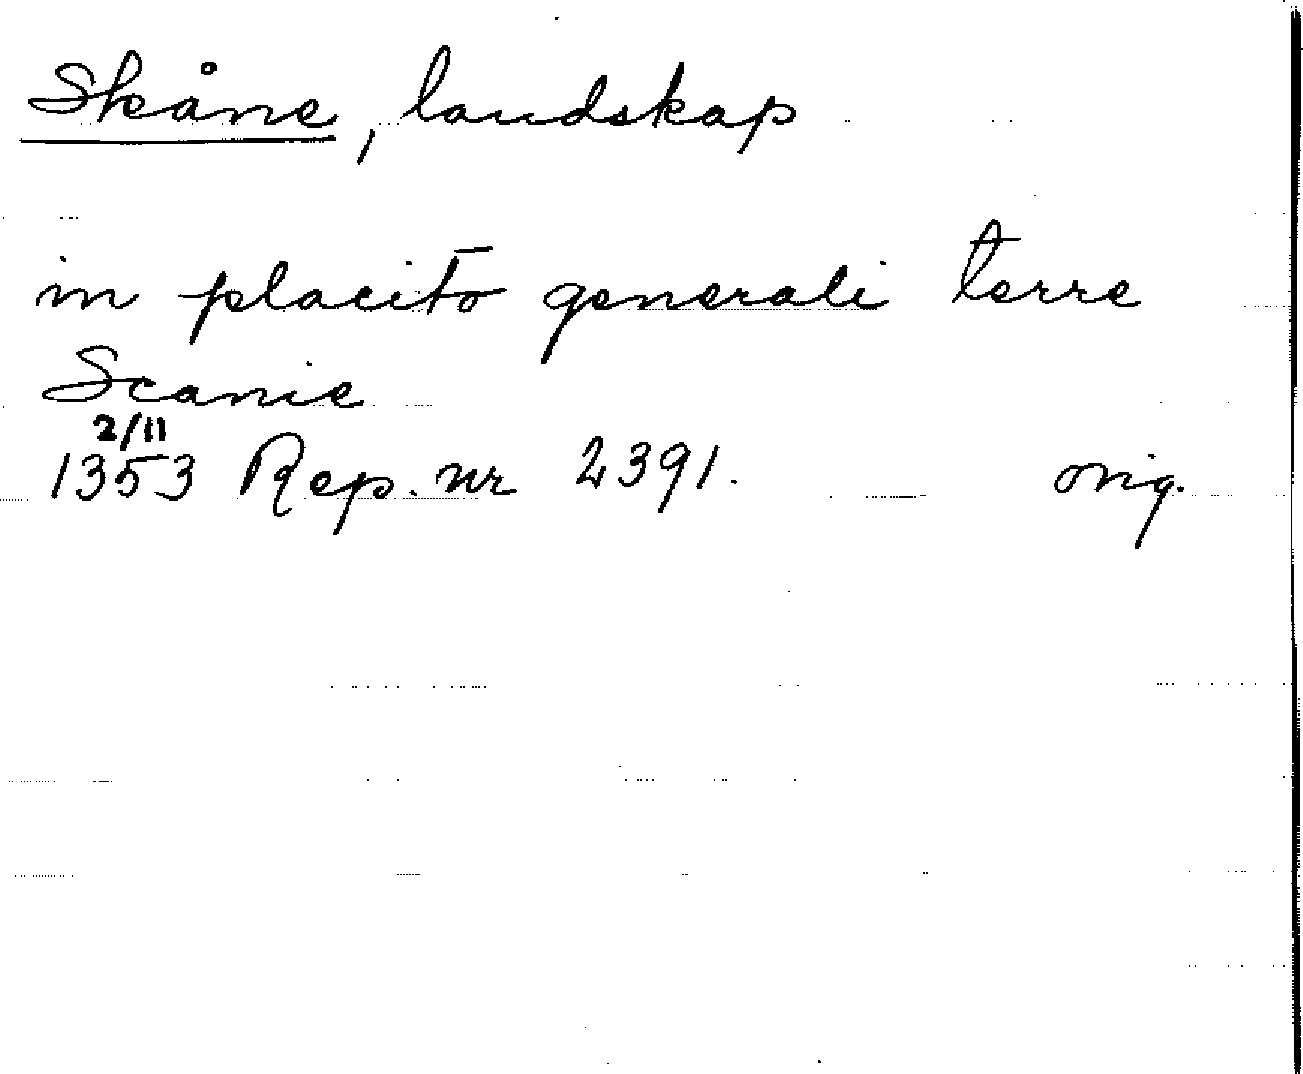 Skåne, landskap
in placito generali terre
Scanie
2/11
1353 Rep. nr 2391. orig.